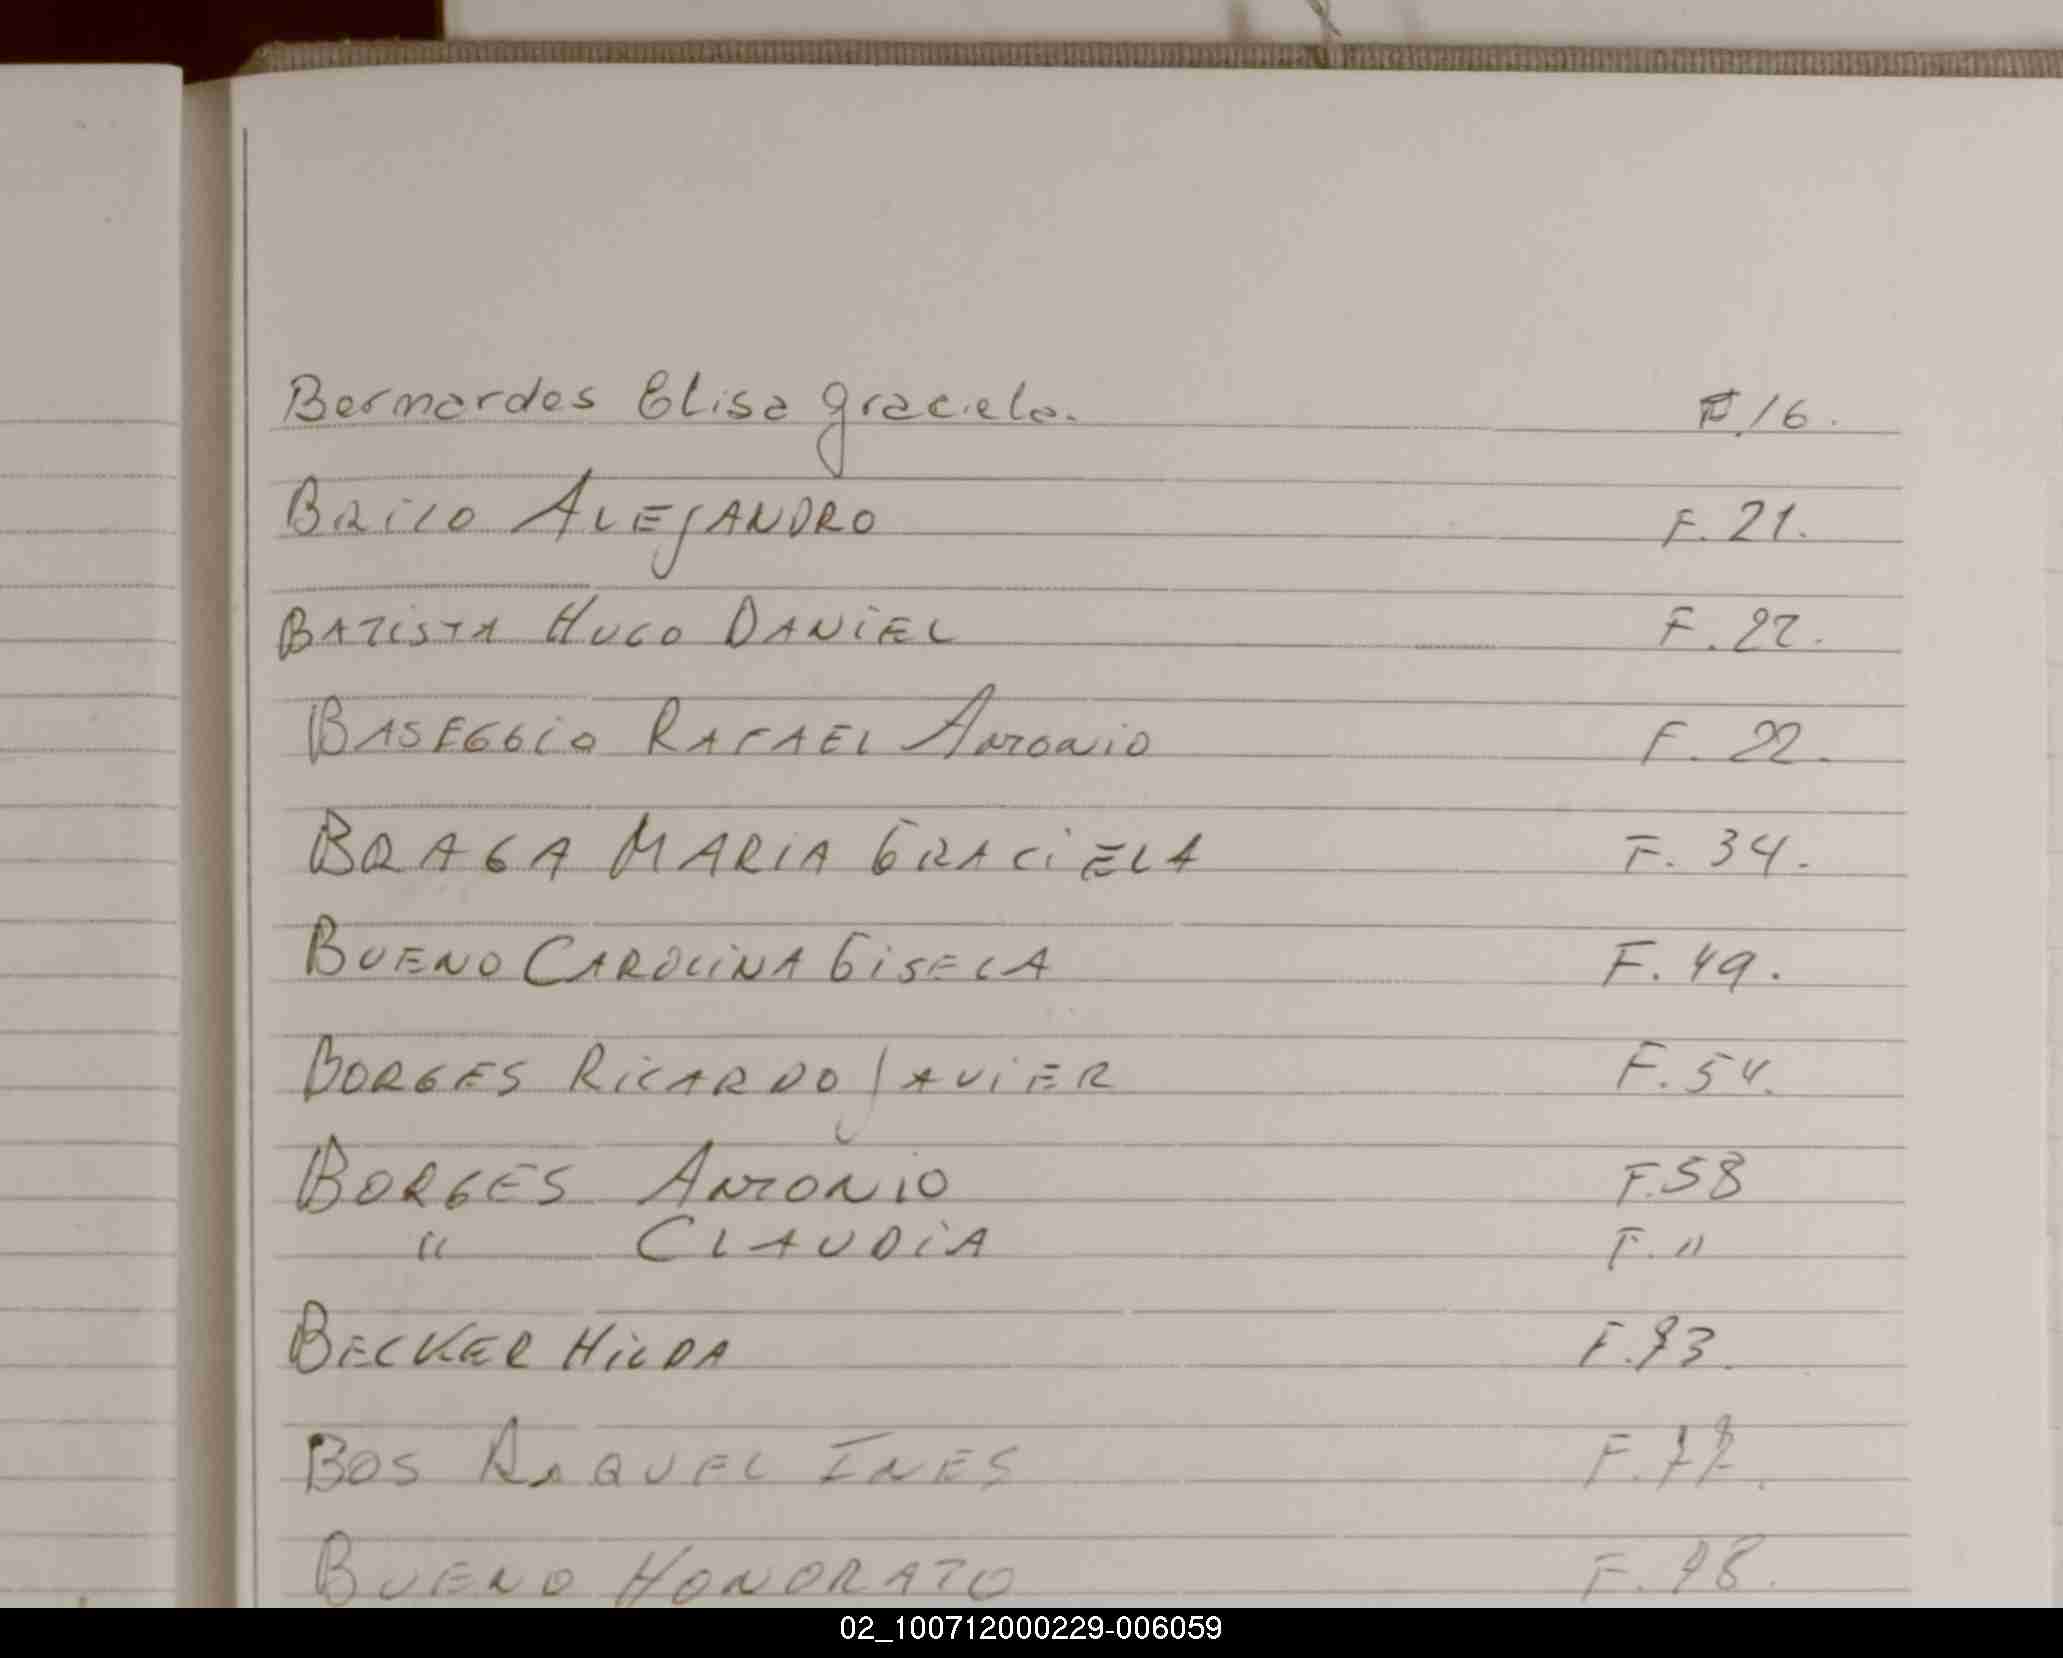 Bernardes Elisa Graciela. F.16.
BRICO ALEJANDRO F. 21.
BATISTA HUGO DANIEL F. 22.
BASEGGIO RAFAEL ANTONIO F. 22.
BRAGA MARIA GRACIELA F. 34.
BUENO CAROLINA GISELA F. 49.
BORGES RICARDO JAVIER F. 54.
BORGES ANTONIO F.58
" CLAUDIA F. "
BECKER HILDA F.73.
BOS RAQUEL INES F.77.
BUENO HONORATO F. 78.
02_100712000229-006059